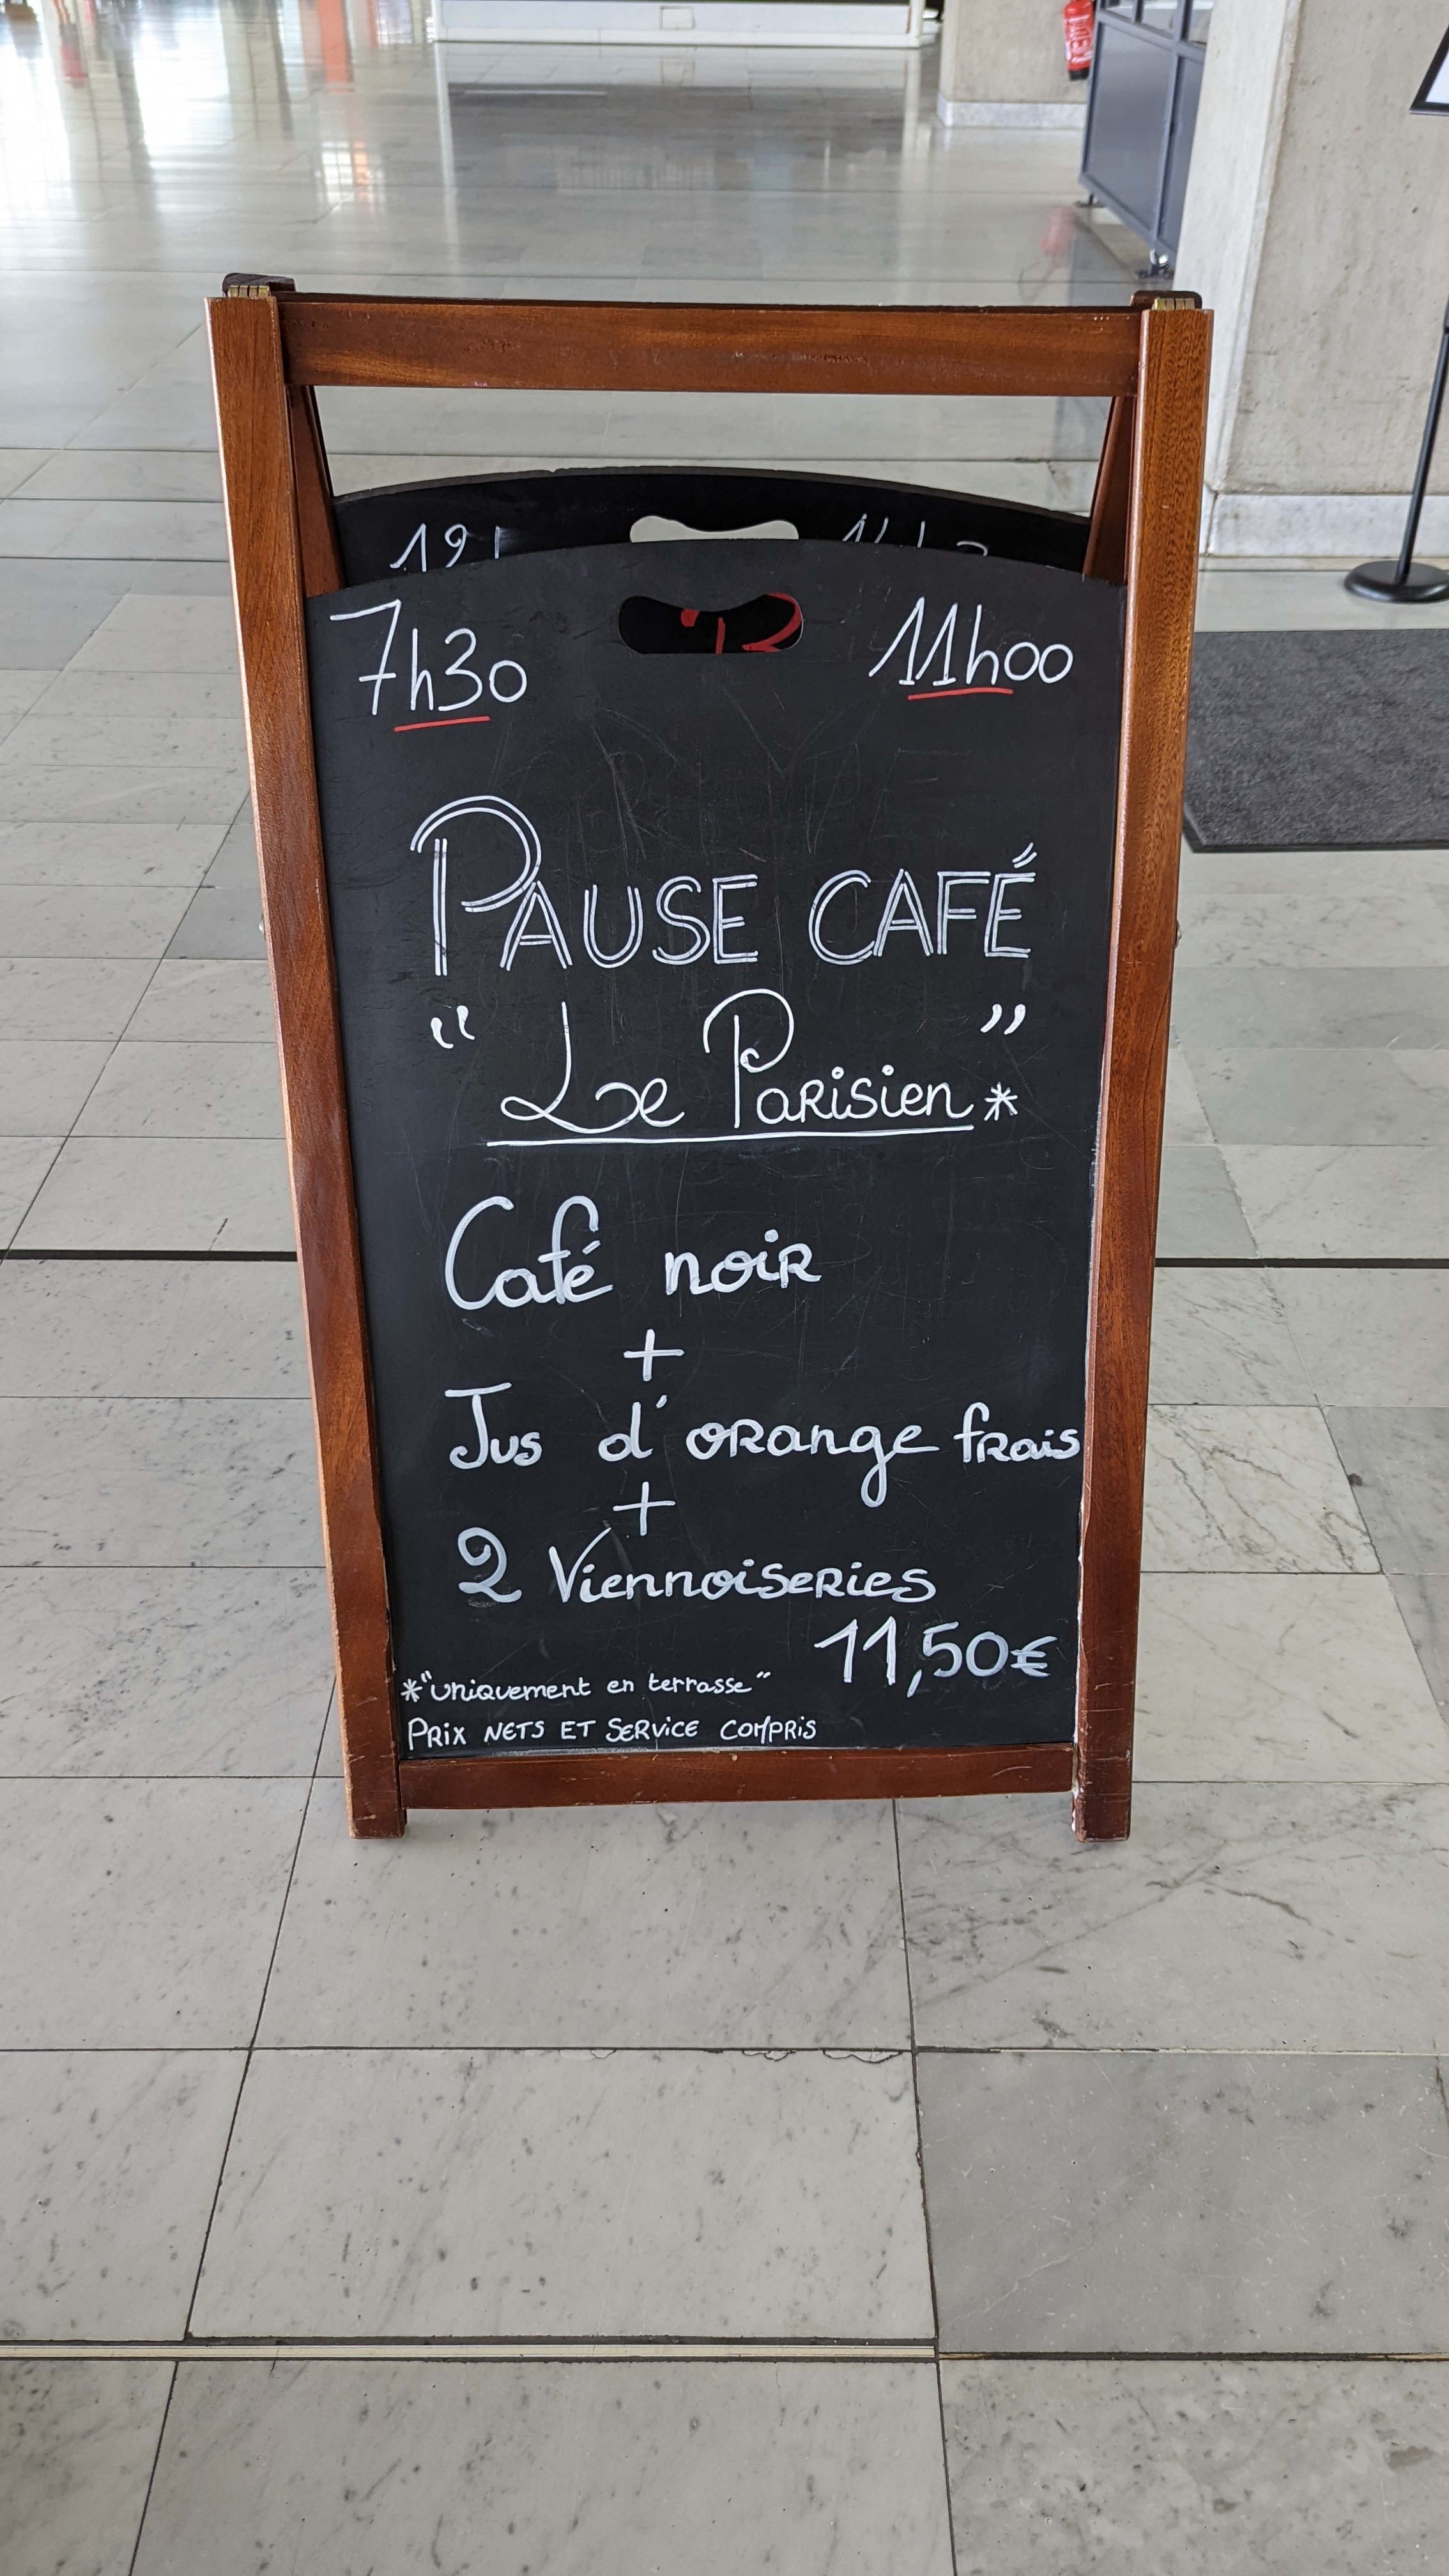 7h30 11h00
PAUSE CAFÉ
“ Le Parisien ” *
Café noir
+
Jus d'orange frais
+
2 Viennoiseries
11,50€
*"uniquement en terrasse"
PRIX NETS ET SERVICE COMPRIS